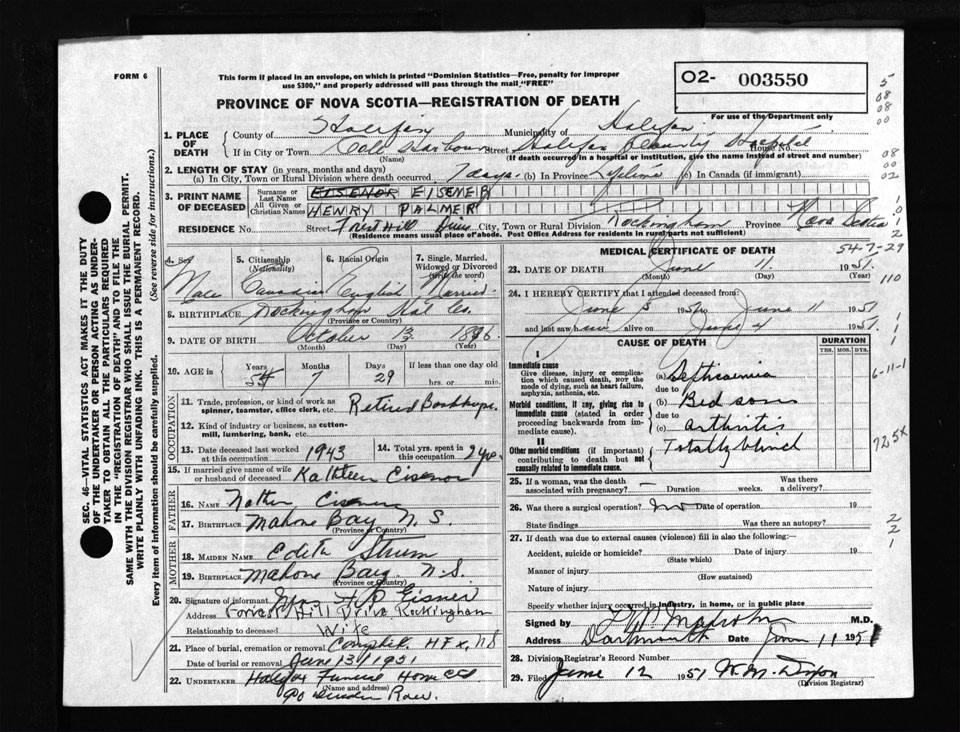 FORM 6
This form if placed in an envelope, on which is printed "Dominion Statistics—Free, penalty for improper
use $300," and properly addressed will pass through the mail "FREE"
O2- 003550
For use of the Department only
PROVINCE OF NOVA SCOTIA—REGISTRATION OF DEATH
1. PLACE OF DEATH
County of Halifax Municipality of Halifax
If in City or Town Cole Harbour Street Halifax County Hospital House No.
(Name) (If death occurred in a hospital or institution, give the name instead of street and number)
2. LENGTH OF STAY (in years, months and days)
(a) In City, Town or Rural Division where death occurred 7 days (b) In Province Lifetime (c) In Canada (if immigrant)
3. PRINT NAME OF DECEASED
Surname or Last Name EISENOR EISENER
All Given or Christian Names HENRY PALMER
RESIDENCE No. Street Forest Hill Drive City, Town or Rural Division Rockingham Province Nova Scotia
(Residence means usual place of abode. Post Office Address for residents in rural parts not sufficient)
4. Sex Male
5. Citizenship (Nationality) Canadian
6. Racial Origin English
7. Single, Married, Widowed or Divorced (write the word) Married
8. BIRTHPLACE Rockingham Hal Co.
(Province or Country)
9. DATE OF BIRTH October 13 1896
(Month) (Day) (Year)
10. AGE in Years 54 Months 7 Days 29 If less than one day hrs. or min.
OCCUPATION
11. Trade, profession, or kind of work as
spinner, teamster, office clerk, etc. Retired
12. Kind of industry or business, as cotton-
mill, lumbering, bank, etc.
13. Date deceased last worked at this occupation 1943
14. Total yrs. spent in this occupation
15. If married give name of wife or husband of deceased Kathleen Eisenor
FATHER
16. NAME
17. BIRTHPLACE Mahone Bay N.S.
(Province or Country)
MOTHER
18. MAIDEN NAME Edith Strum
19. BIRTHPLACE Mahone Bay N.S.
(Province or Country)
20. Signature of informant Mrs. H P Eisner
Address Forrest Hill Drive Rockingham
Relationship to deceased Wife
21. Place of burial, cremation or removal HFx, NS
Date of burial or removal June 13/1951
22. UNDERTAKER Halifax Funeral Home
(Name and address)
MEDICAL CERTIFICATE OF DEATH
54-7-29
23. DATE OF DEATH June 11 1951
(Month) (Day)
24. I HEREBY CERTIFY that I attended deceased from:
June 5 1951 to June 11 1951
and last saw him alive on June 4 1951
CAUSE OF DEATH
DURATION
YRS. MOS. DYS.
I
Immediate cause
Give disease, injury or complica-
tion which caused death, not the
mode of dying, such as heart failure,
asphyxia, asthenia, etc.
(a) Septicaemia
due to
Morbid conditions, if any, giving rise to
immediate cause (stated in order
proceeding backwards from im-
mediate cause).
(b) Bed sores
due to
(c) arthritis
II
Other morbid conditions (if important)
contributing to death but not
causally related to immediate cause.
Totally blind
25. If a woman, was the death associated with pregnancy? — Duration weeks. Was there a delivery?
26. Was there a surgical operation? No Date of operation 19
State findings Was there an autopsy?
27. If death was due to external causes (violence) fill in also the following:—
Accident, suicide or homicide? Date of injury 19
(State which)
Manner of injury
(How sustained)
Nature of injury
Specify whether injury occurred in industry, in home, or in public place
Signed by M.D.
Address Dartmouth Date June 11 1951
28. Division Registrar's Record Number
29. Filed June 12 1951
(Division Registrar)
SEC. 46—VITAL STATISTICS ACT MAKES IT THE DUTY
OF THE UNDERTAKER OR PERSON ACTING AS UNDER-
TAKER TO OBTAIN ALL THE PARTICULARS REQUIRED
IN THE "REGISTRATION OF DEATH" AND TO FILE THE
SAME WITH THE DIVISION REGISTRAR WHO SHALL ISSUE THE BURIAL PERMIT.
WRITE PLAINLY WITH UNFADING INK. THIS IS A PERMANENT RECORD.
Every item of information should be carefully supplied. (See reverse side for instructions.)